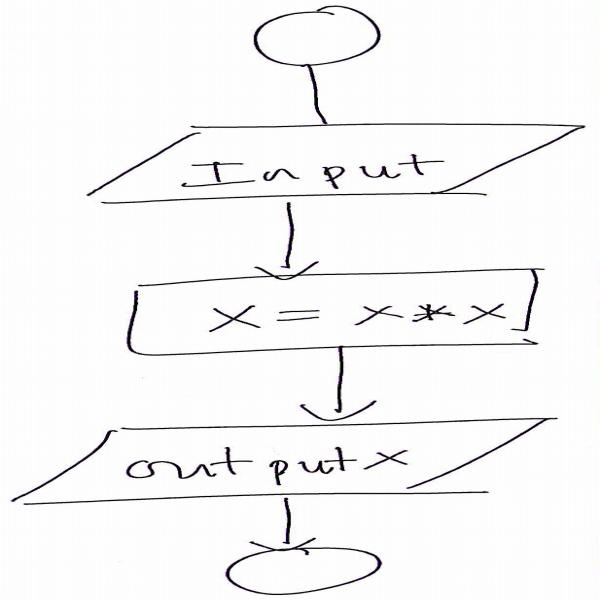 Input
X = X * X
output x